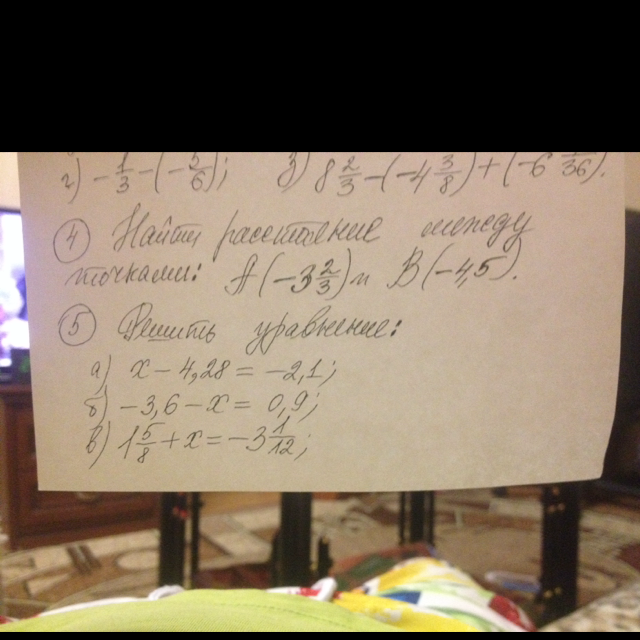 г) -1/3 - (-5/6); 8 2/3 - (-4 3/8) + (-6 /36).
④ Найти расстояние между
точками: А(-3 2/3) и В(-4,5).
⑤ Решить уравнение:
а) x - 4,28 = -2,1;
б) -3,6 - x = 0,9;
в) 1 5/8 + x = -3 1/12;